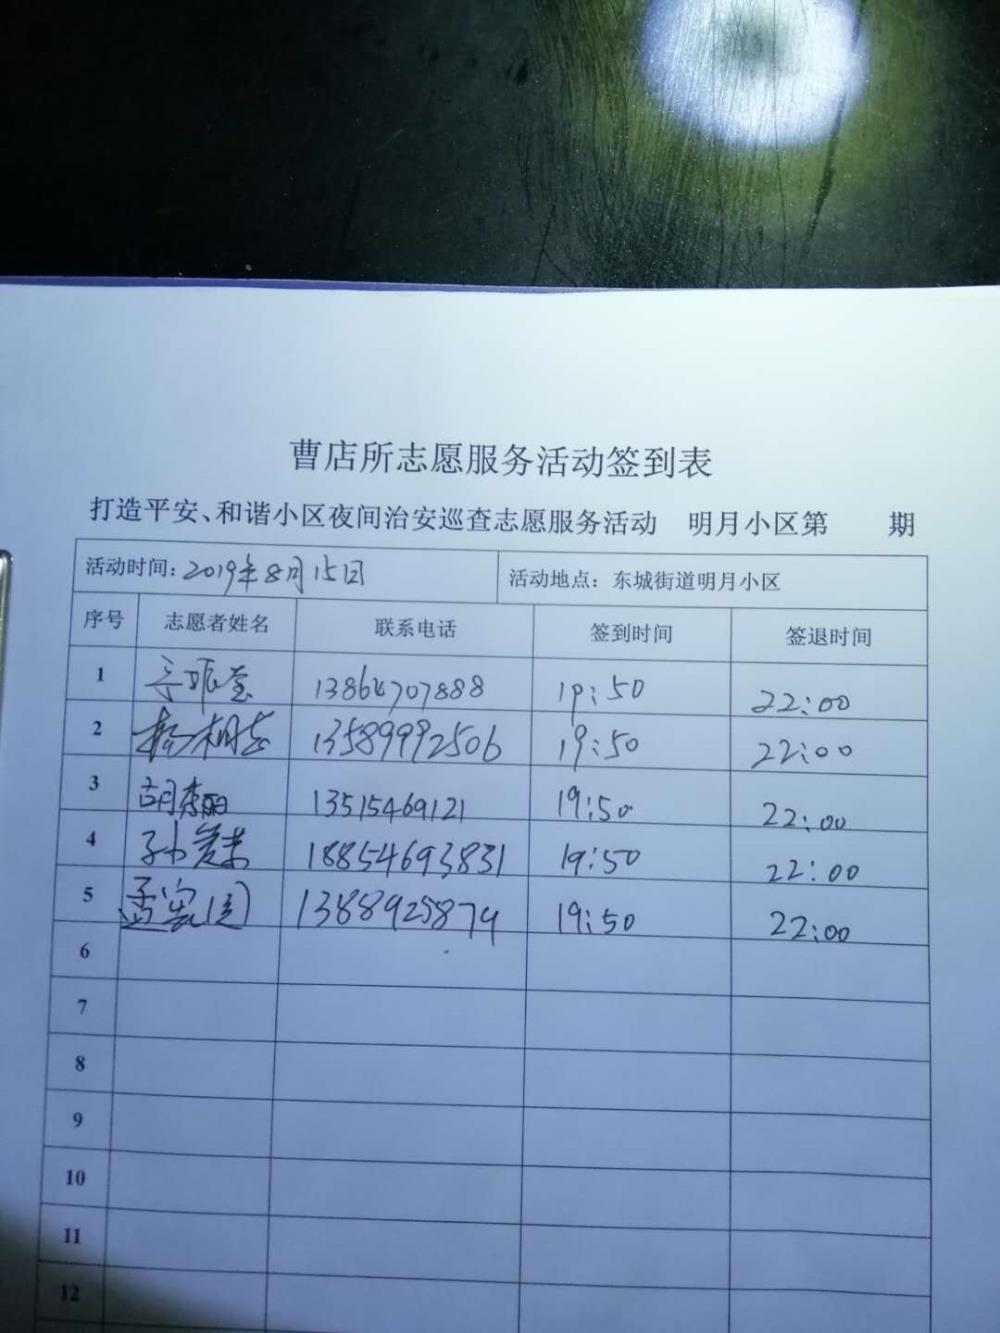 曹店所志愿服务活动签到表
打造平安、和谐小区夜间治安巡查志愿服务活动 明月小区第 期
活动时间:2019年8月15日 活动地点: 东城街道明月小区
序号 志愿者姓名 联系电话 签到时间 签退时间
1 13864707888 19:50 22:00
2 13589992506 19:50 22:00
3 胡秀丽 13515469121 19:50 22:00
4 18854693831 19:50 22:00
5 1388925879 19:50 22:00
6
7
8
9
10
11
12